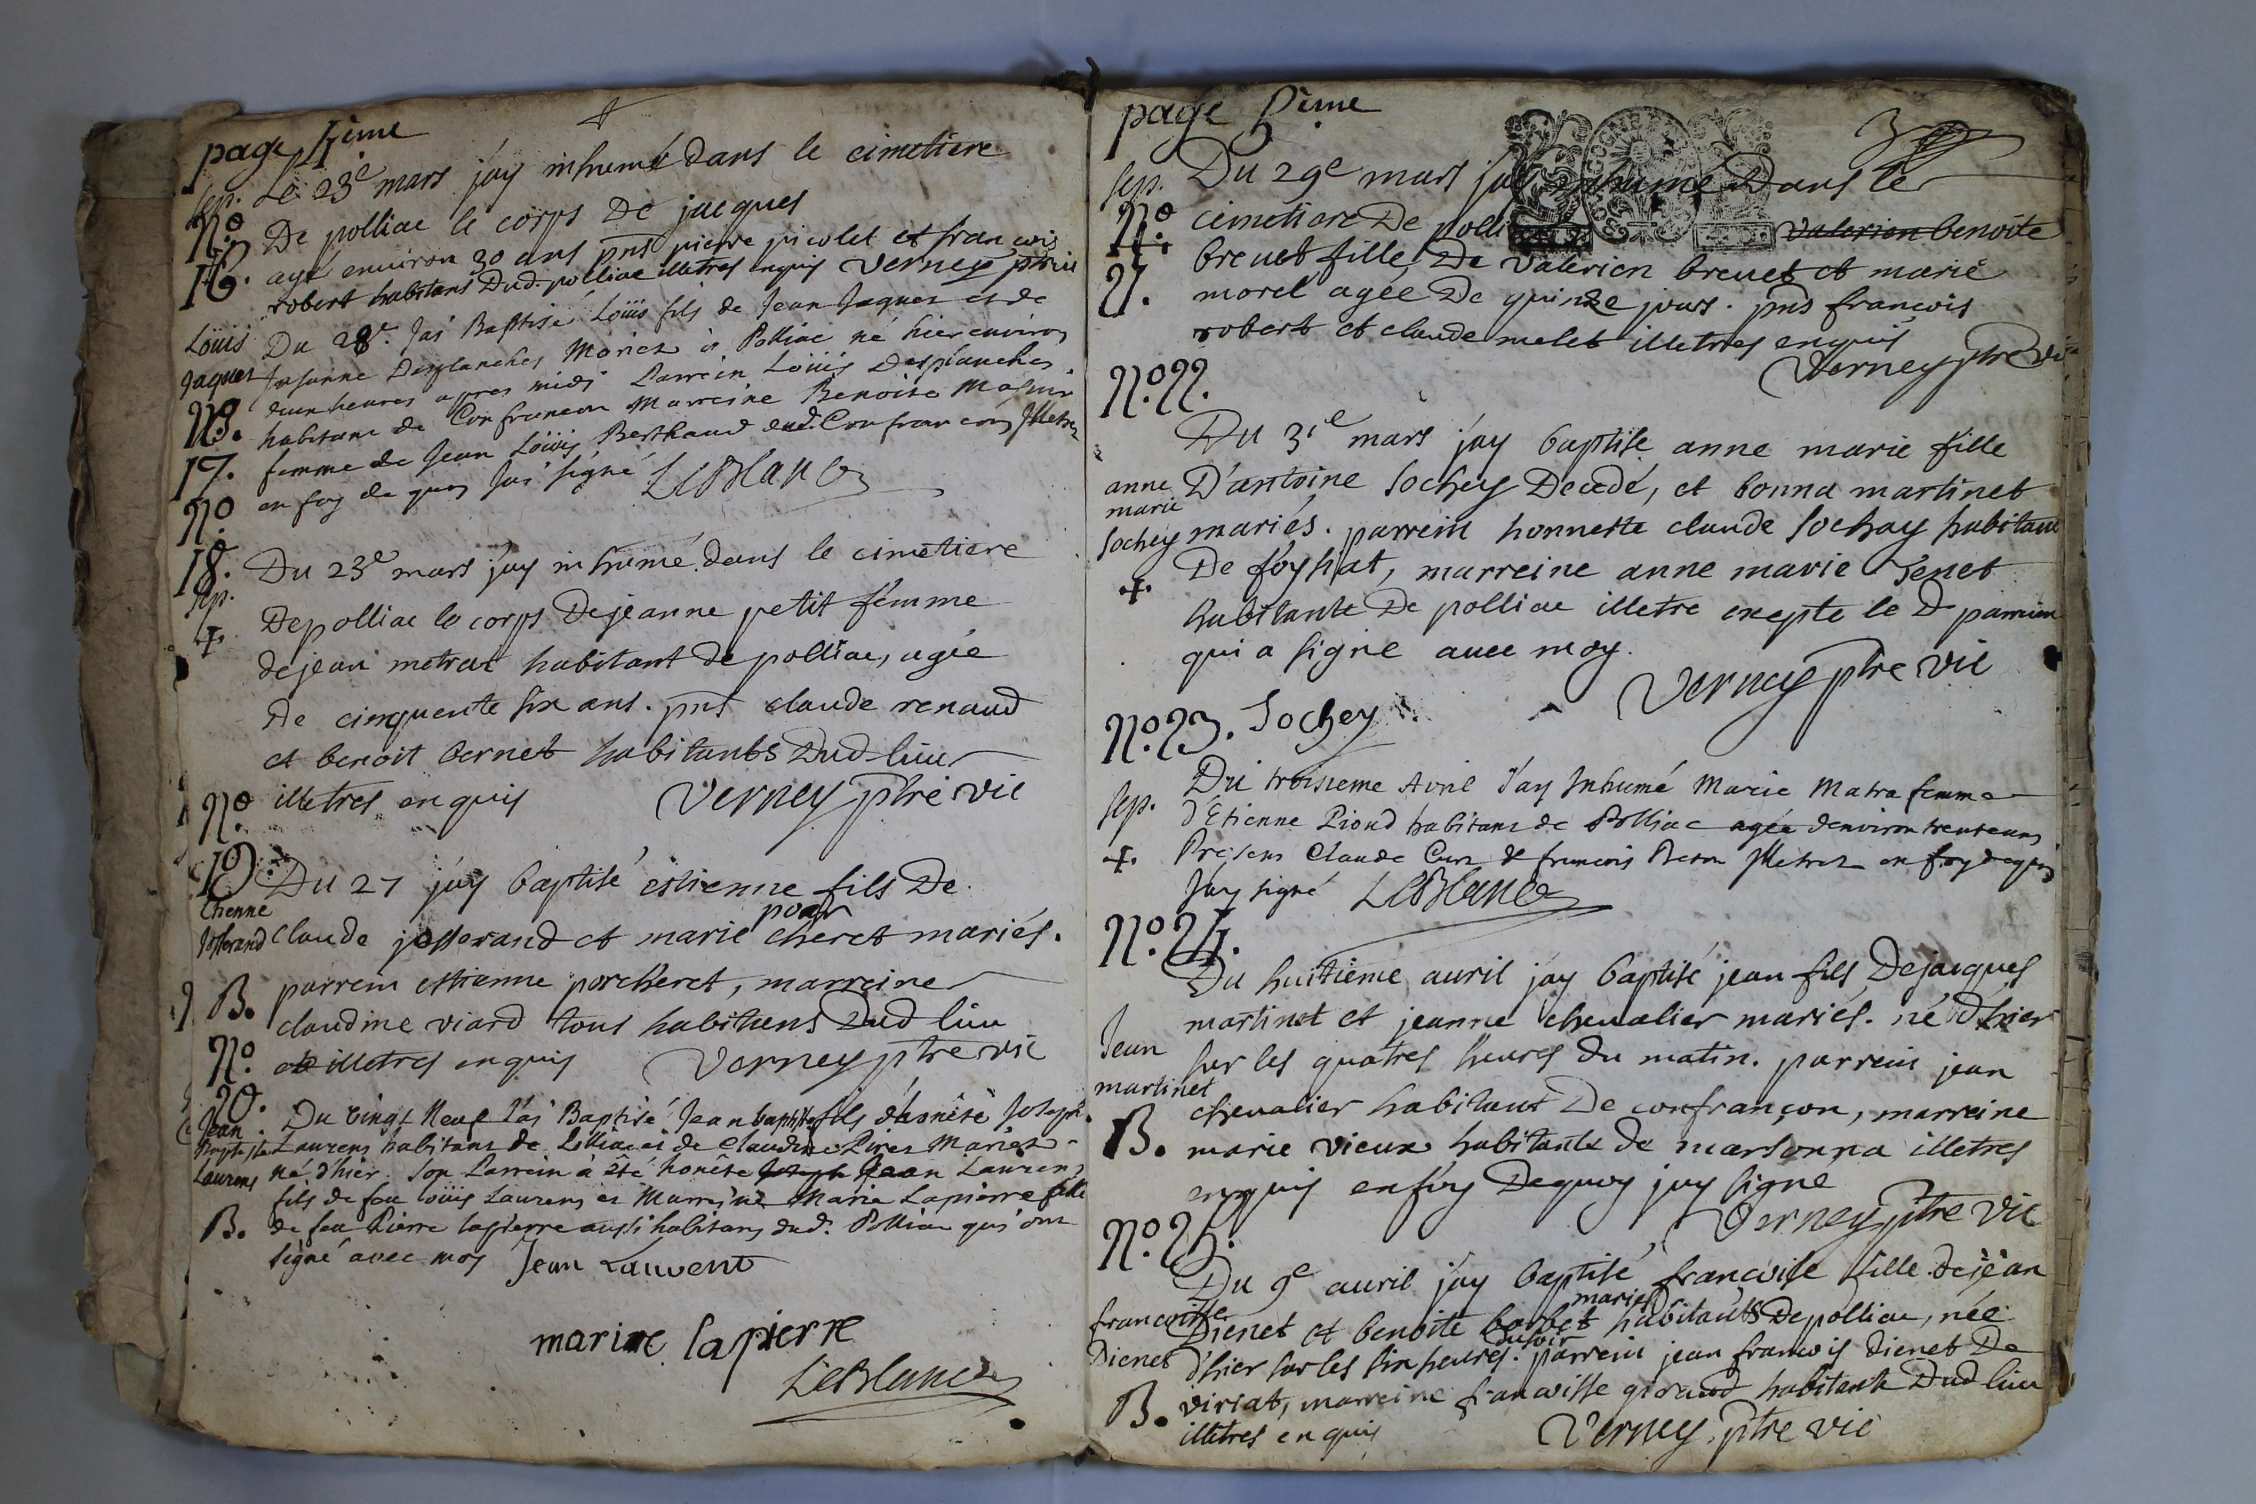 page 4ieme
sep. Le 23e mars jay inhumé dans le cimetiere
No De polliac le corps De jacques
16. agé environ 30 ans pnts pierre picolet et francois
robert habitans Dud. polliac illetres enquis Verney ptre vic
Louis Du 28e. Jai Baptisé Loüis fils de Jean Jaques et de
Jaques Susanne Desplanches Mariez à Polliac né hier environ
deux heures apres midi Parrein Loüis Desplanches
B. habitant de Confrancon Marreine Benoite
17. femme de Jean Loüis Berthaud dud. Confrancon Illetrez
No en foy de quoy Jai signé LeBlanc
18. Du 23e mars jay inhumé dans le cimetiere
sep. De polliac le corps De jeanne petit femme
+ de jean metrat habitant de polliac, agée
De cinquente six ans. pnts claude renaud
et benoit bernet habitants Dud lieu
No illetres enquis Verney ptre vic
19. Du 27 jay baptisé estienne fils De
Etienne por
Josserand claude josserand et marie cheret mariés.
B. parrein estienne porcheret, marreine
claudine viard tous habitans Dud lieu
No. et illetres enquis Verney ptre vic
20.
Jean Du vingt Neuf J'ai Baptisé Jean baptiste fils d'honête Joseph
Baptiste Laurens habitant de Polliac et de Claudine Piret Mariez
Laurens né d'hier. Son Parrein à été honête Joseph Jean Laurens
fils de feu Loüis Laurens et Marreine Marie Lapierre fille
B. de feu Pierre lapierre aussi habitans dud. Polliac qui ont
signé avec moy Jean Laurent
marie lapierre
LeBlanc
page 5ieme
3
sep. Du 29e mars jay inhumé Dans le
No cimetiere De polliac Valerien benoite
21. breuet fille De Valerien breuet et marie
morel agée De quinze jours. pnts francois
robert et claude melet illetres enquis
Verney ptre vic
No. 22.
Du 31e mars jay baptisé anne marie fille
anne D'antoine Sochey Decedé, et bonna martinet
marie
Sochey mariés. parrein honneste claude Sochay habitant
+ De foyssiat, marreine anne marie Tenet
habitante De polliac illetre excepte le D parrein
qui a signé avec moy.
Verney ptre vic
No. 23. Sochey
Du troisieme Avril J'ay Inhumé Marie Matra femme
sep. d'Etienne Pioud habitant de Polliac agée denviron trente ans
+ Presens Claude Curt & francois Illetrez en foy de quoy
J'ay signé LeBlanc
No. 24.
Du huitième auril jay baptisé jean fils De jacques
martinet et jeanne chevalier mariés. né D'hier
Jean sur les quatres heures du matin. parrein jean
martinet chevalier habitant De confrançon, marreine
B. marie vieux habitante de marsonna illetres
enquis enfoy Dequoy jay signé
Verney ptre vic
No. 25.
Du 9e auril jay baptisé francoise fille de jean
mariés
francoisse Dienet et benoite borbet habitants De polliac, née
du soir
Dienet d'hier sur les six heures. parrein jean francois Dienet De
B. viriat, marreine francoisse giraud habitante Dud lieu
illetres enquis Verney ptre vic